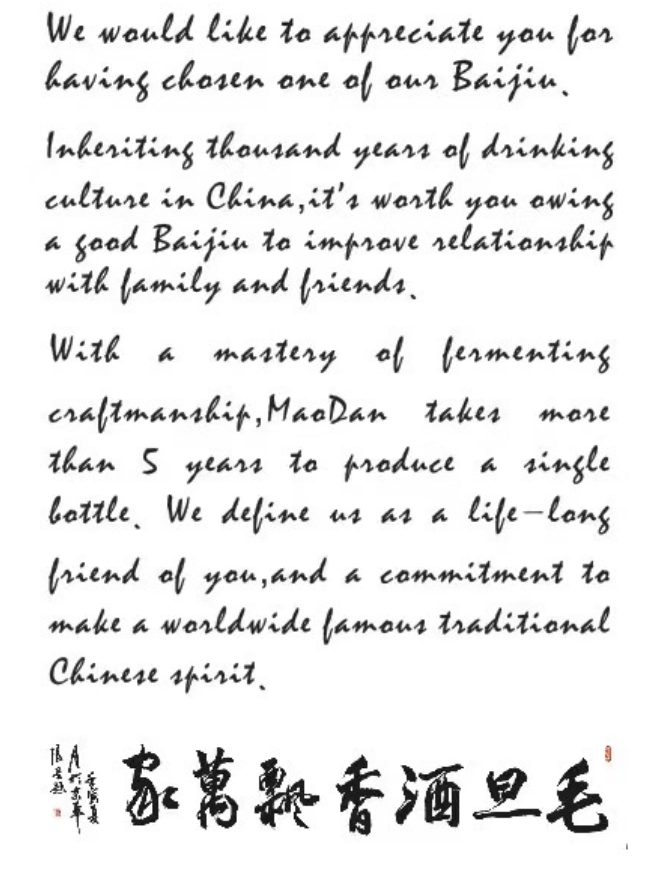 We would like to appreciate you for
having chosen one of our Baijiu.
Inheriting thousand years of drinking
culture in China,it's worth you owing
a good Baijiu to improve relationship
with family and friends.
With a mastery of fermenting
craftmanship,MaoDan takes more
than 5 years to produce a single
bottle. We define us as a life-long
friend of you,and a commitment to
make a worldwide famous traditional
Chinese spirit.
毛旦酒香飄萬家